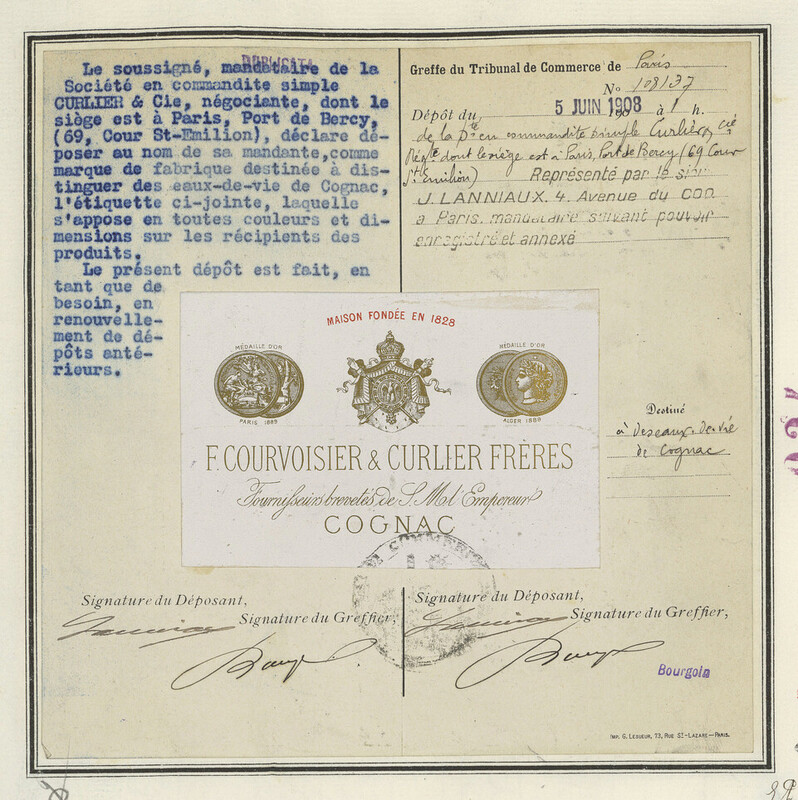 DUPLICATA
Le soussigné, mandataire de la
Société en commandite simple
CURLIER & Cie, négociante, dont le
siège est à Paris, Port de Bercy,
(69, Cour St-Emilion), déclare dé-
poser au nom de sa mandante, comme
marque de fabrique destinée à dis-
tinguer des eaux-de-vie de Cognac,
l'étiquette ci-jointe, laquelle
s'appose en toutes couleurs et di-
mensions sur les récipients des
produits.
Le présent dépôt est fait, en
tant que de
besoin, en
renouvelle-
ment de dé-
pôts anté-
rieurs.
Greffe du Tribunal de Commerce de Paris
No 108137
Dépôt du 5 JUIN 1908 à 1 h.
de la Sté en commandite simple Curlier & Cie
Négte dont le siège est à Paris, Port de Bercy (69 Cour
St Emilion) Représenté par le sieur
J. LANNIAUX. 4. Avenue du COQ
a Paris. mandataire suivant pouvoir
enregistré et annexé
MAISON FONDÉE EN 1828
MÉDAILLE D'OR
PARIS 1889
MÉDAILLE D'OR
ALGER 1888
F. COURVOISIER & CURLIER FRÈRES
Fournisseurs brevetés de S. M. l'Empereur
COGNAC
Destiné
à des eaux-de-vie
de Cognac
COMMERCE
Signature du Déposant,
Signature du Greffier,
Signature du Déposant,
Signature du Greffier,
Bourgoin
IMP. G. LESUEUR, 73, RUE ST-LAZARE—PARIS.